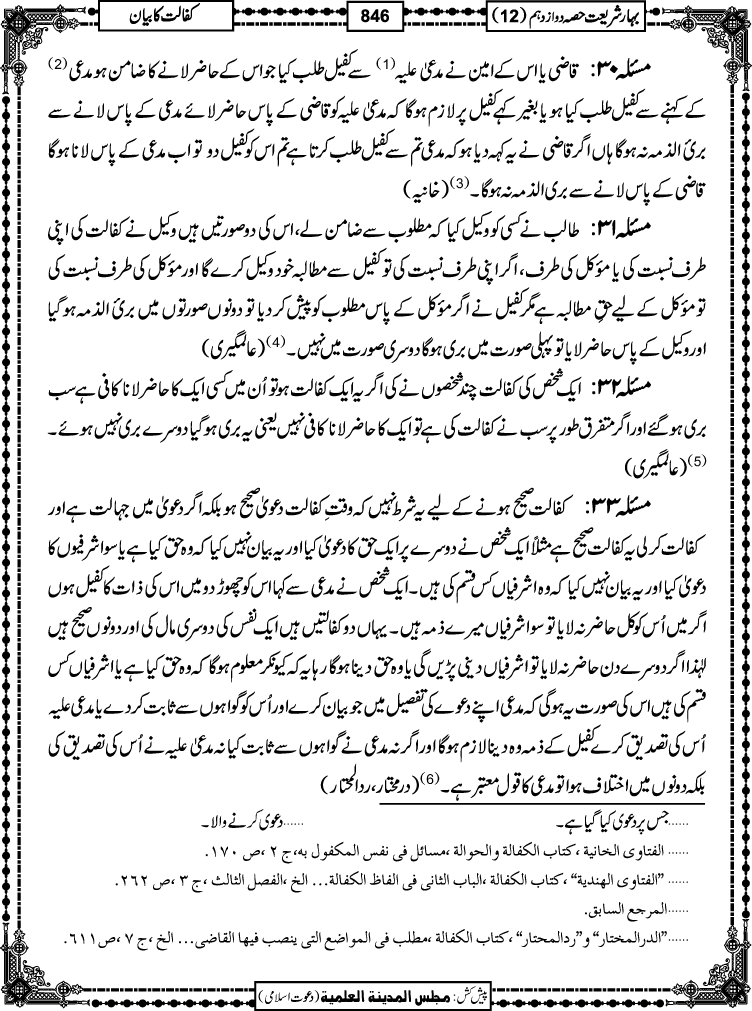 بہارِ شریعت حصہ دوازدہم (12)
846
کفالت کا بیان
مسئلہ ۳۰: قاضی یا اس کے امین نے مدعیٰ علیہ (1) سے کفیل طلب کیا جو اس کے حاضر لانے کا ضامن ہو مدعی (2)
کے کہنے سے کفیل طلب کیا ہو یا بغیر کہے کفیل پر لازم ہوگا کہ مدعیٰ علیہ کو قاضی کے پاس حاضر لائے مدعی کے پاس لانے سے
بریٔ الذمہ نہ ہوگا ہاں اگر قاضی نے یہ کہہ دیا ہو کہ مدعی تم سے کفیل طلب کرتا ہے تم اس کو کفیل دو تو اب مدعی کے پاس لانا ہوگا
قاضی کے پاس لانے سے بری الذمہ نہ ہوگا۔ (3) (خانیہ)
مسئلہ ۳۱: طالب نے کسی کو وکیل کیا کہ مطلوب سے ضامن لے، اس کی دو صورتیں ہیں وکیل نے کفالت کی اپنی
طرف نسبت کی یا مؤکل کی طرف، اگر اپنی طرف نسبت کی تو کفیل سے مطالبہ خود وکیل کرے گا اور مؤکل کی طرف نسبت کی
تو مؤکل کے لیے حقِ مطالبہ ہے مگر کفیل نے اگر مؤکل کے پاس مطلوب کو پیش کر دیا تو دونوں صورتوں میں بریٔ الذمہ ہوگیا
اور وکیل کے پاس حاضر لایا تو پہلی صورت میں بری ہوگا دوسری صورت میں نہیں۔ (4) (عالمگیری)
مسئلہ ۳۲: ایک شخص کی کفالت چند شخصوں نے کی اگر یہ ایک کفالت ہو تو اُن میں کسی ایک کا حاضر لانا کافی ہے سب
بری ہوگئے اور اگر متفرق طور پر سب نے کفالت کی ہے تو ایک کا حاضر لانا کافی نہیں یعنی یہ بری ہوگیا دوسرے بری نہیں ہوئے۔
(5) (عالمگیری)
مسئلہ ۳۳: کفالت صحیح ہونے کے لیے یہ شرط نہیں کہ وقتِ کفالت دعویٰ صحیح ہو بلکہ اگر دعویٰ میں جہالت ہے اور
کفالت کرلی یہ کفالت صحیح ہے مثلاً ایک شخص نے دوسرے پر ایک حق کا دعویٰ کیا اور یہ بیان نہیں کیا کہ وہ حق کیا ہے یا سو اشرفیوں کا
دعویٰ کیا اور یہ بیان نہیں کیا کہ وہ اشرفیاں کس قسم کی ہیں۔ ایک شخص نے مدعی سے کہا اس کو چھوڑ دو میں اس کی ذات کا کفیل ہوں
اگر میں اُس کو کل حاضر نہ لایا تو سو اشرفیاں میرے ذمہ ہیں۔ یہاں دو کفالتیں ہیں ایک نفس کی دوسری مال کی اور دونوں صحیح ہیں
لہٰذا اگر دوسرے دن حاضر نہ لایا تو اشرفیاں دینی پڑیں گی یا وہ حق دینا ہوگا رہا یہ کہ کیونکر معلوم ہوگا کہ وہ حق کیا ہے یا اشرفیاں کس
قسم کی ہیں اس کی صورت یہ ہوگی کہ مدعی اپنے دعوے کی تفصیل میں جو بیان کرے اور اُس کو گواہوں سے ثابت کردے یا مدعیٰ علیہ
اُس کی تصدیق کرے کفیل کے ذمہ وہ دینا لازم ہوگا اور اگر نہ مدعی نے گواہوں سے ثابت کیا نہ مدعیٰ علیہ نے اُس کی تصدیق کی
بلکہ دونوں میں اختلاف ہوا تو مدعی کا قول معتبر ہے۔ (6) (درمختار، ردالمحتار)
......جس پر دعویٰ کیا گیا ہے۔ ......دعویٰ کرنے والا۔
...... الفتاوی الخانیة، کتاب الکفالة والحوالة، مسائل فی نفس المکفول به، ج ۲، ص ۱۷۰.
...... ”الفتاوی الهندیة“، کتاب الکفالة، الباب الثانی فی الفاظ الکفالة... الخ، الفصل الثالث، ج ۳، ص ۲۶۲.
......المرجع السابق.
......”الدرالمختار“ و”ردالمحتار“، کتاب الکفالة، مطلب فی المواضع التی ینصب فیها القاضی... الخ، ج ۷، ص ۶۱۱.
پیش کش: مجلس المدینة العلمیة (دعوتِ اسلامی)